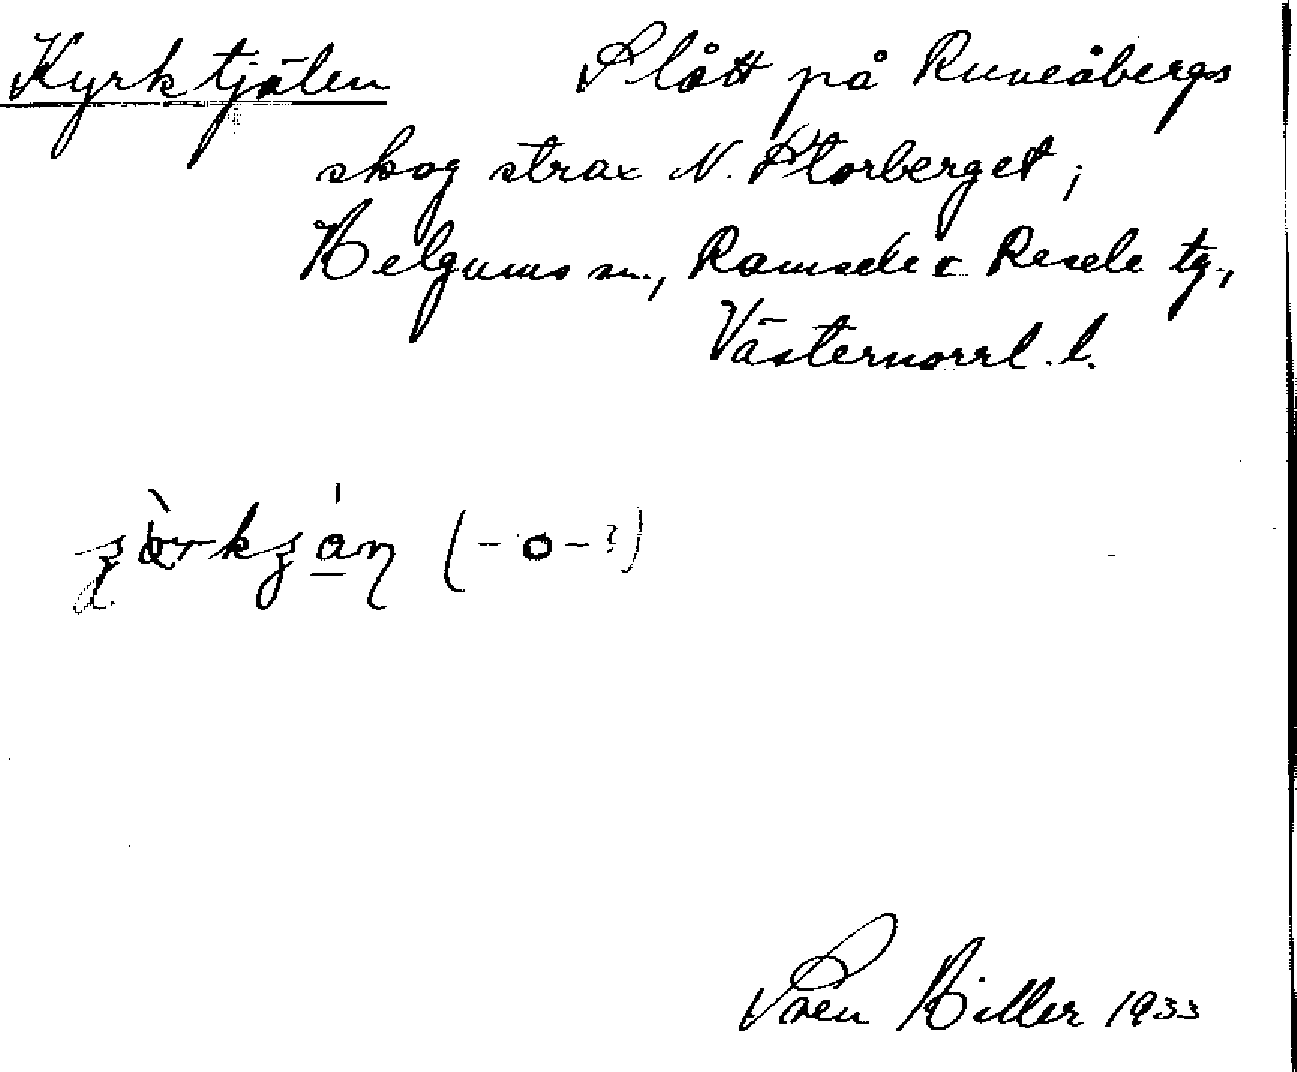 Kyrktjälen Slått på Runeåbergs
skog strax N. Storberget;
Helgums sn., Ramsele o Resele tg.,
Västernorrl. l.
(-o-?)
Sven Hiller 1933